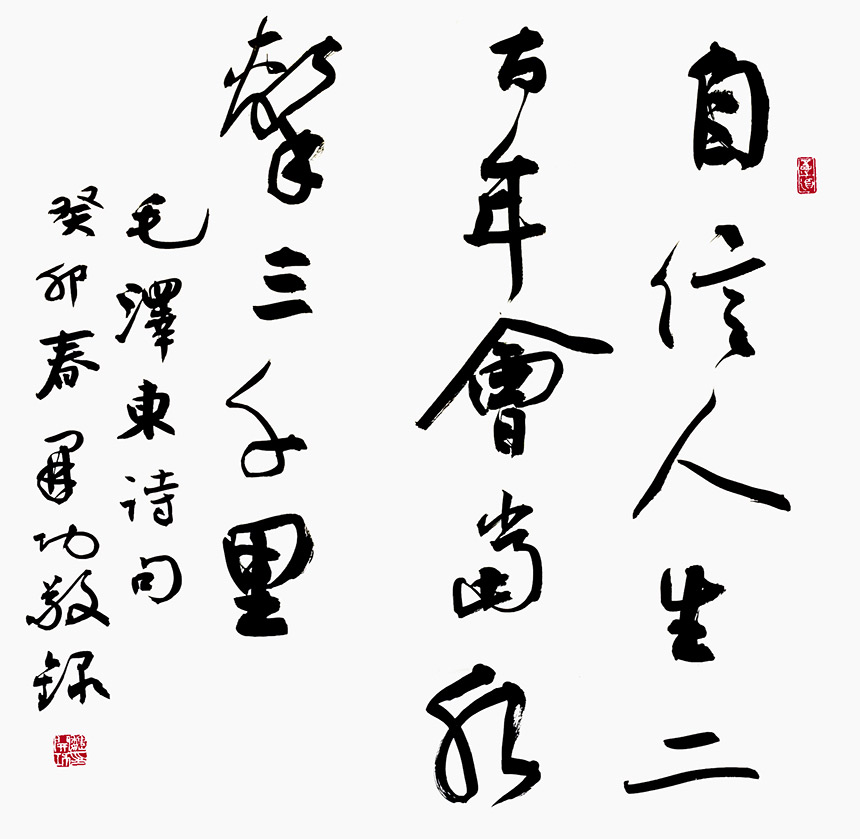 自信人生二
百年會當水
擊三千里
毛澤東詩句
癸卯春開功敬録